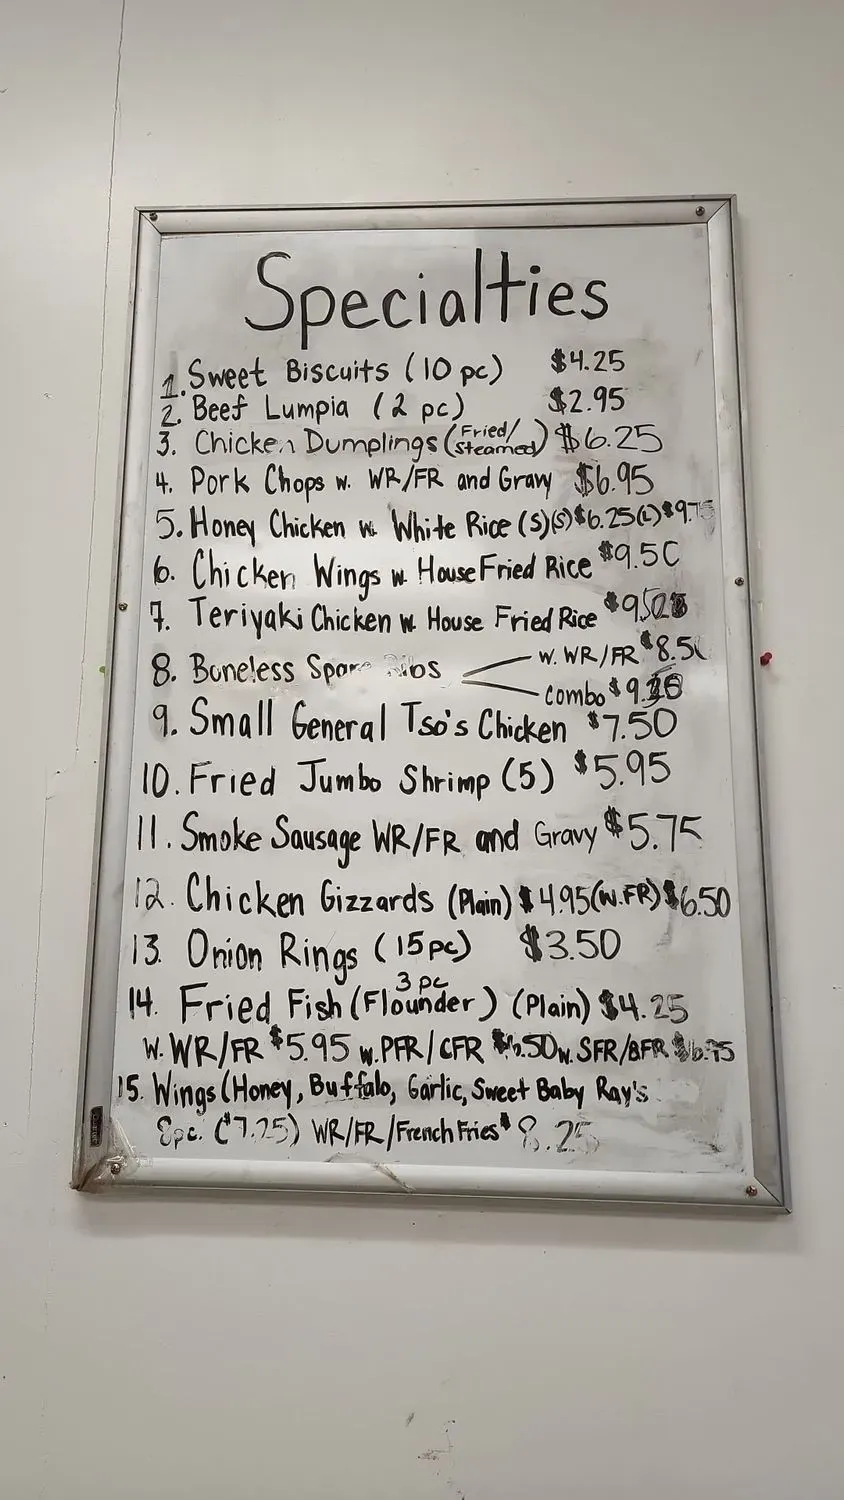 Specialties
1. Sweet Biscuits (10 pc) $4.25
2. Beef Lumpia (2 pc) $2.95
3. Chicken Dumplings (Fried/Steamed) $6.25
4. Pork Chops w. WR/FR and Gravy $6.95
5. Honey Chicken w. White Rice (S)(S)$6.25(L)$9.75
6. Chicken Wings w. House Fried Rice $9.50
7. Teriyaki Chicken w. House Fried Rice
8. Boneless Spare Ribs w. WR/FR $8.50
combo
9. Small General Tso's Chicken $7.50
10. Fried Jumbo Shrimp (5) $5.95
11. Smoke Sausage WR/FR and Gravy $5.75
12. Chicken Gizzards (Plain) $4.95 (w.FR) $6.50
13. Onion Rings (15 pc) $3.50
3 pc
14. Fried Fish (Flounder) (Plain) $4.25
w. WR/FR $5.95 w. PFR/CFR $6.50 w. SFR/BFR $6.75
15. Wings (Honey, Buffalo, Garlic, Sweet Baby Ray's
8pc. ($7.25) WR/FR/French Fries $8.25